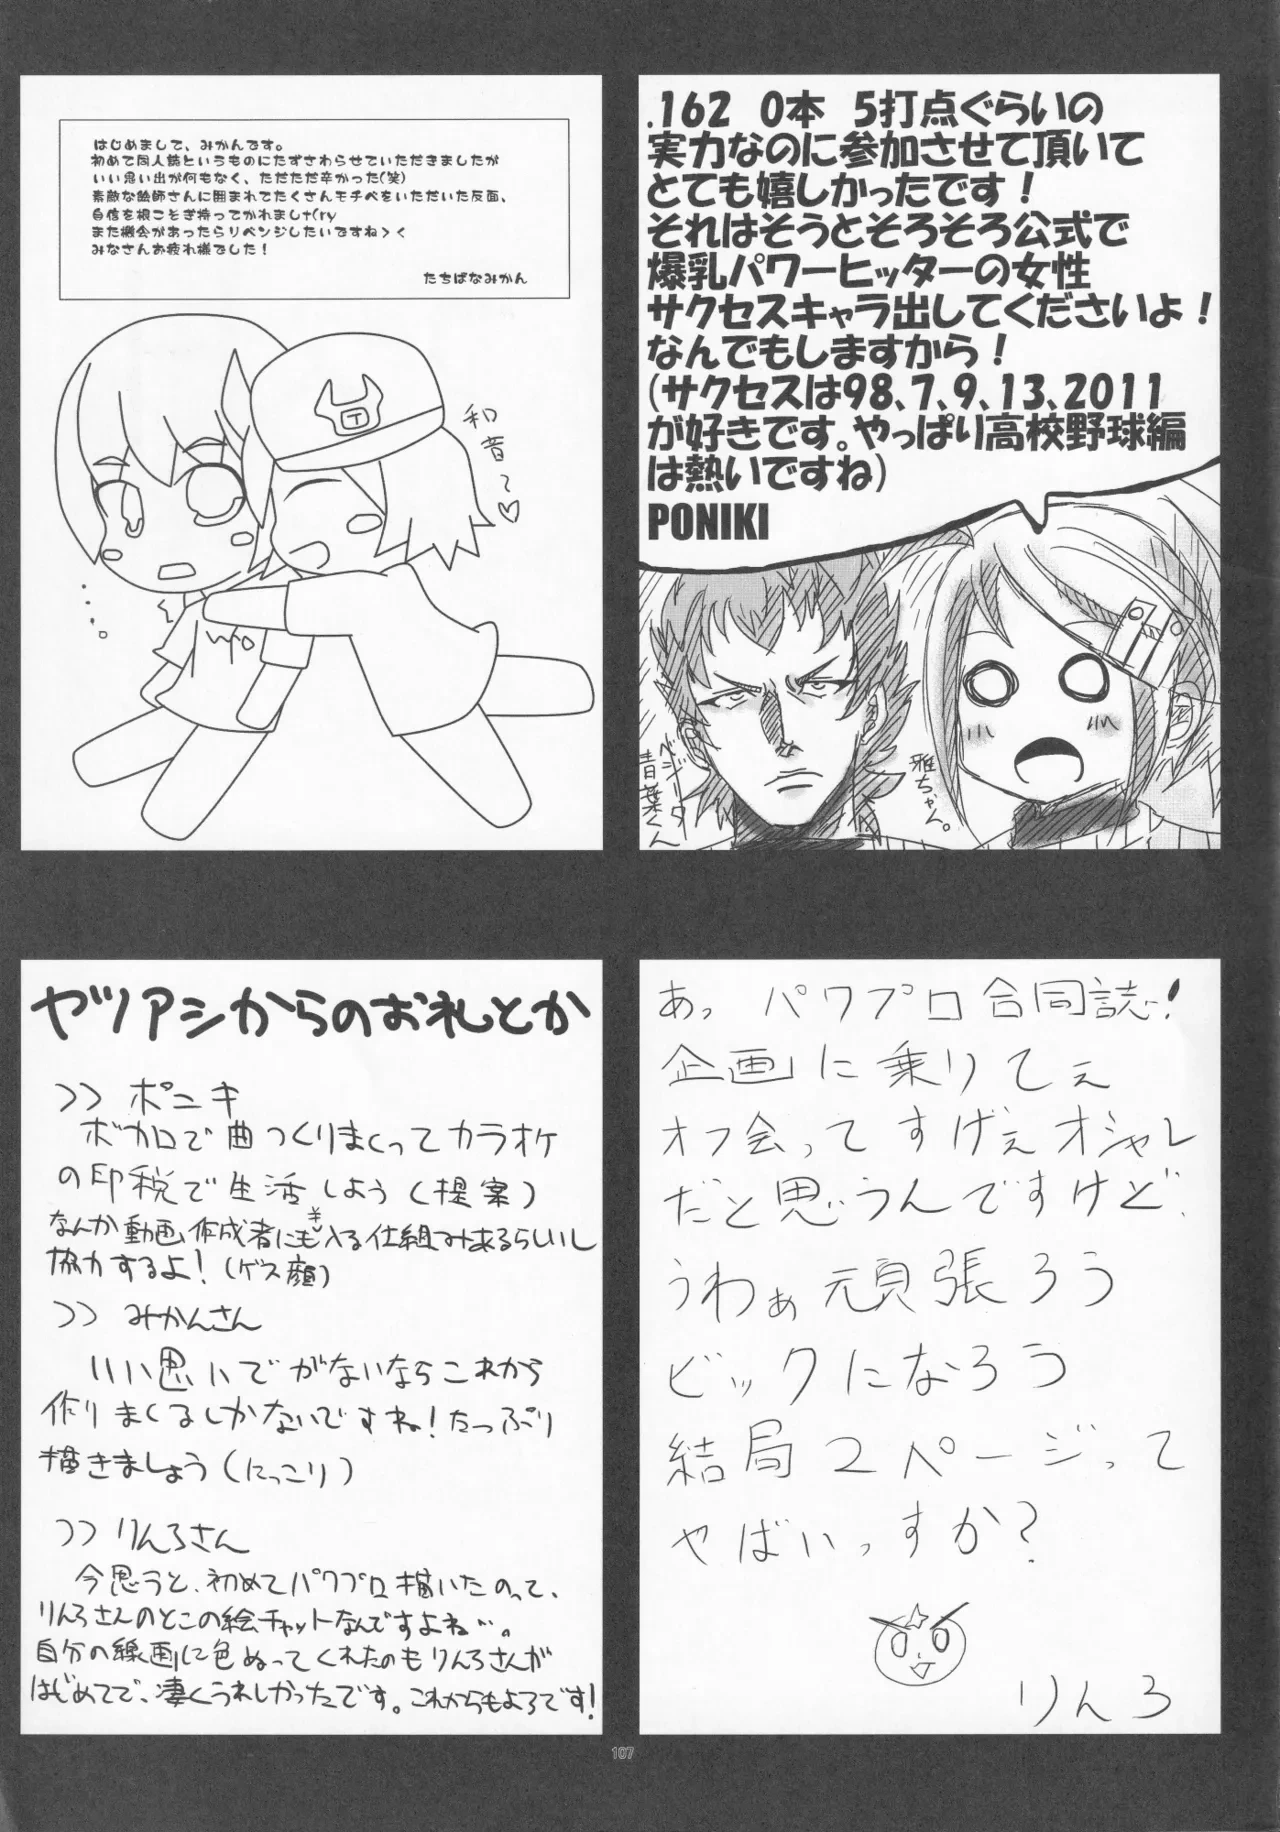 はじめまして、みかんです。
初めて同人誌というものにたずさわらせていただきましたが
いい思い出が何もなく、ただただ辛かった(笑)
素敵な絵師さんに囲まれてたくさんモチベをいただいた反面、
自信を根こそぎ持ってかれまし†(ry
また機会があったらリベンジしたいですね＞＜
みなさんお疲れ様でした！
たちばなみかん
和音～♡
.162 0本 5打点ぐらいの
実力なのに参加させて頂いて
とても嬉しかったです！
それはそうとそろそろ公式で
爆乳パワーヒッターの女性
サクセスキャラ出してくださいよ！
なんでもしますから！
(サクセスは98、7、9、13、2011
が好きです。やっぱり高校野球編
は熱いですね)
PONIKI
ベジータ
青葉くん
雅ちゃん。
ヤツアシからのお礼とか
>>ポニキ
ボカロで曲つくりまくってカラオケ
の印税で生活しよう(提案)
なんか動画作成者にも¥入る仕組みあるらしいし
協力するよ！(ゲス顔)
>>みかんさん
いい思いでがないならこれから
作りまくるしかないですね！たっぷり
描きましょう(にっこり)
>>りんろさん
今思うと、初めてパワプロ描いたのって、
りんろさんのとこの絵チャットなんですよね…。
自分の線画に色ぬってくれたのもりんろさんが
はじめてで、凄くうれしかったです。これからもよろです！
あっ パワプロ合同誌！
企画に乗りてぇ
オフ会ってすげぇオシャレ
だと思うんですけど、
うわぁ頑張ろう
ビックになろう
結局2ページって
やばいっすか？
りんろ
107